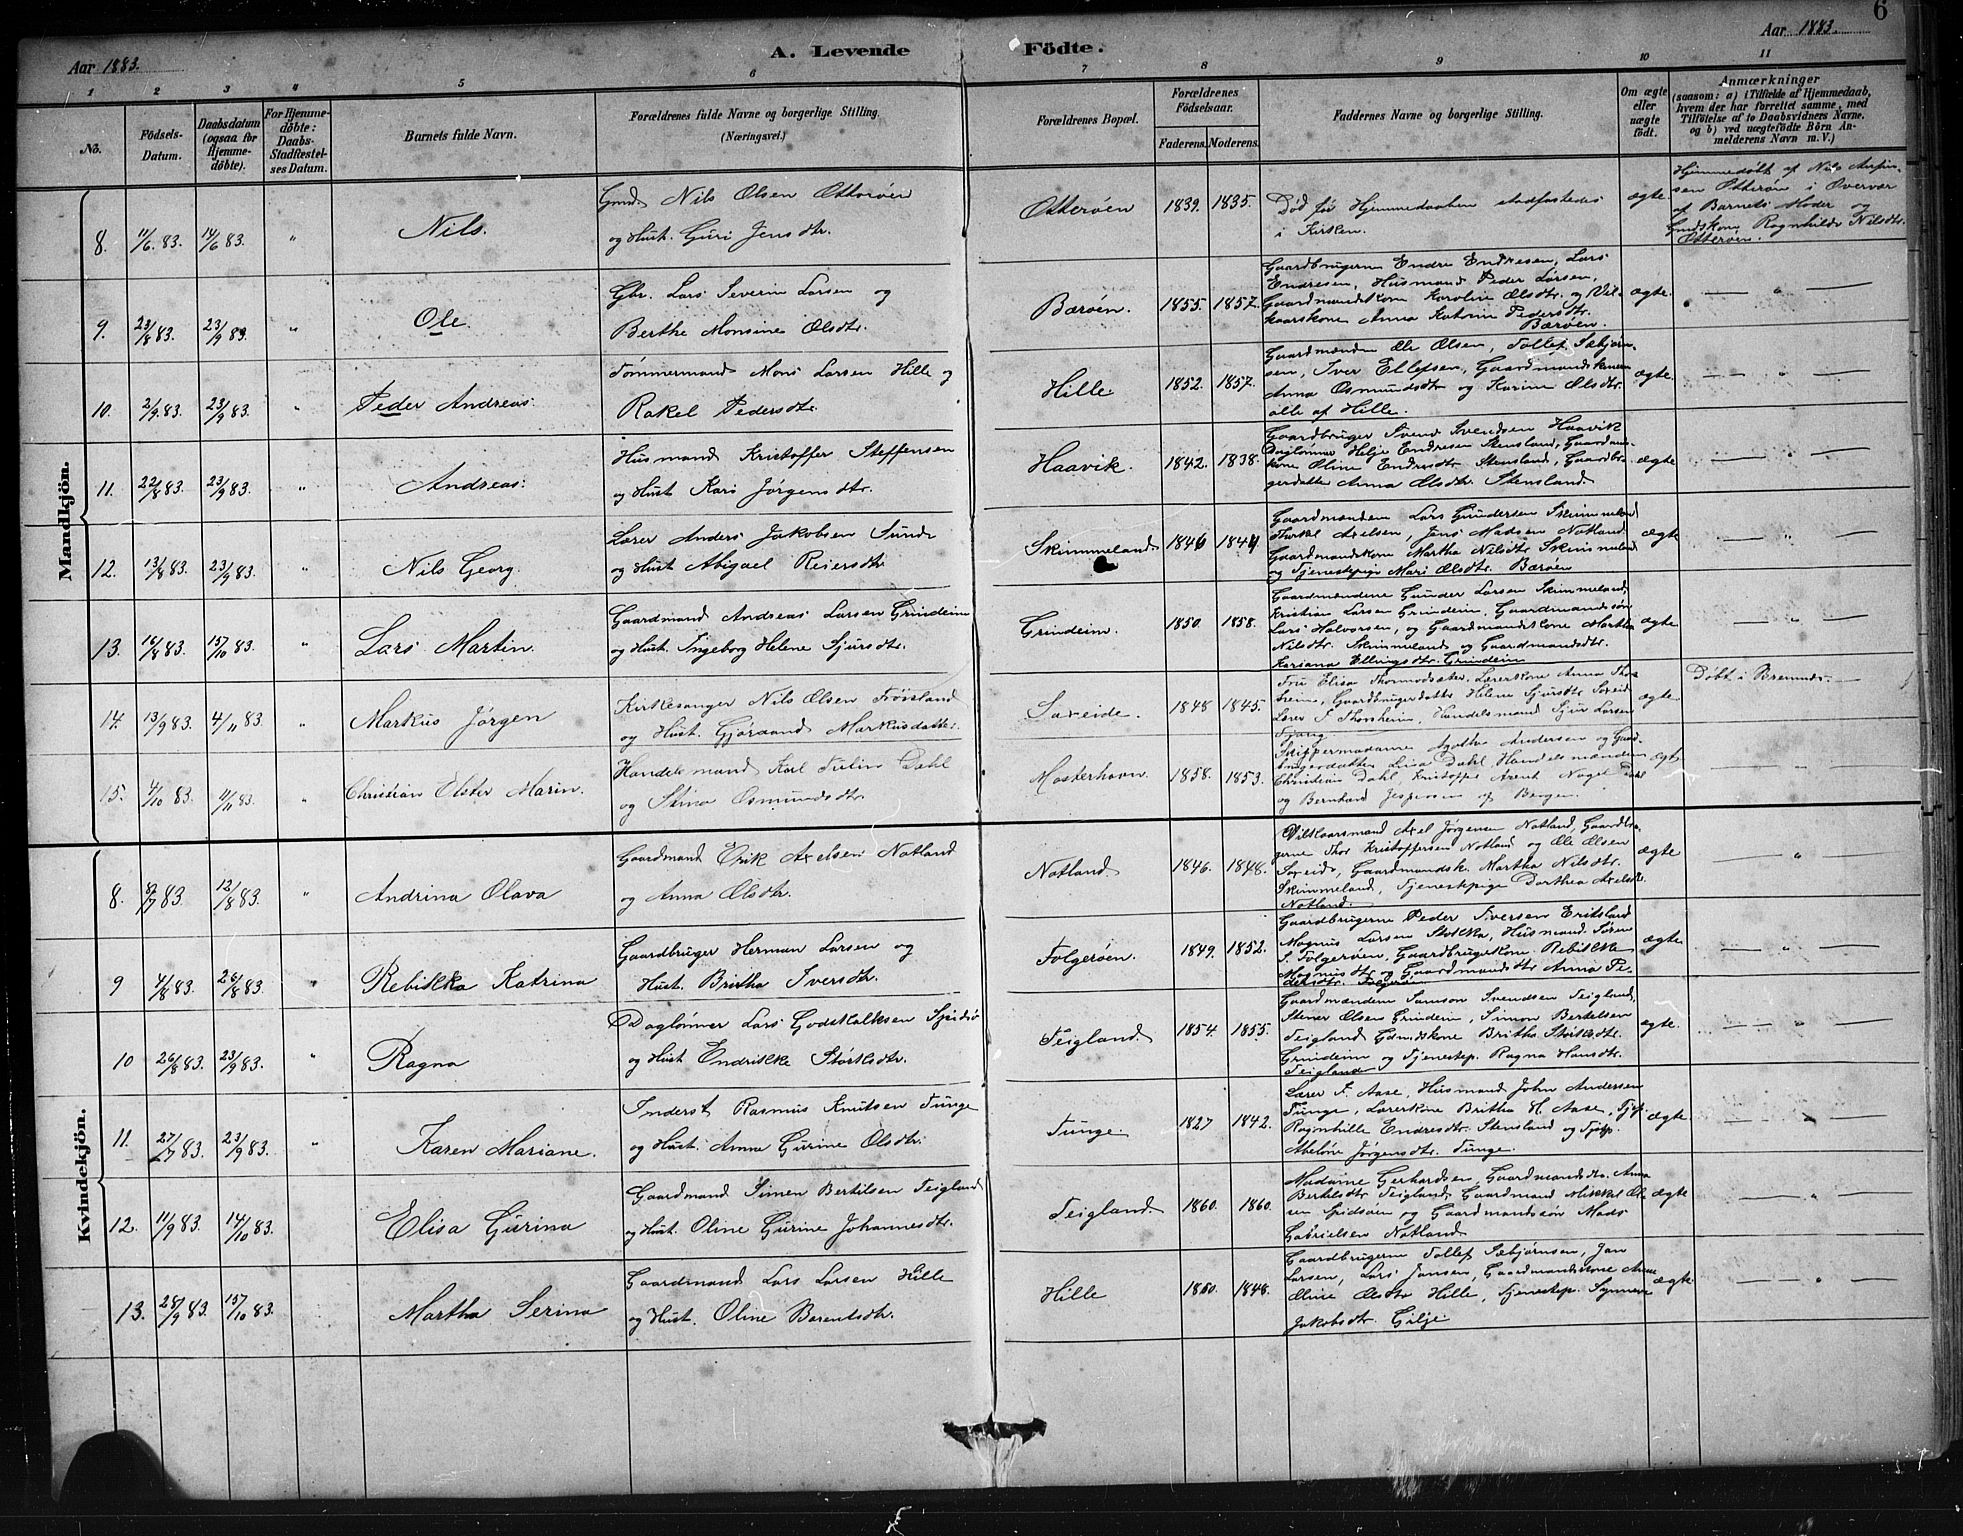 6
Aar 1883.
A. Levende Födte.
Aar 1883.
1 2 3 4 5 6 7 8 9 10 11
No.
Födsels-Datum.
Daabsdatum (ogsaa for Hjemmedöbte).
For Hjemmedöbte: Daabs-Stadfæstelses Datum.
Barnets fulde Navn.
Forældrenes fulde Navne og borgerlige Stilling. (Næringsvei.)
Forældrenes Bopæl.
Forældrenes Födselsaar.
Faderens. Moderens.
Faddernes Navne og borgerlige Stilling.
Om ægte eller uægte födt.
Anmærkninger
(saasom: a) i Tilfælde af Hjemmedaab, hvem der har forrettet samme, med Tilföielse af to Daabsvidners Navne, og b) ved uægtefödte Börn Anmelderens Navn m.V.)
Mandkjön.
8. 11/6 83. 14/6 83. " Nils.
Gmd Nils Olsen Otteröen
og Hust. Guri Jensdtr.
Otteröen 1839. 1835.
Död før Hjemmedaaben stadfæstedes
i Kirken.
ægte.
Hjemmedøbt af Nils
sen Otteröen i Overvær
af Barnets Moder og
Gmdskone Ragnhilds Nilsdtr.
Otteröen.
9. 23/8 83. 23/9 83. " Ole.
Gbr. Lars Severin Larsen og
Berthe Monsine Olsdtr.
Bæröen. 1855. 1857.
Gaardbrugerne Endre Endresen, Lars
Endresen, Husmand Peder Larsen,
Gaardmandskone Karoline Olsdtr. og Vil-
kaarskone Anna Katrine Pedersdtr.
Bæröen.
ægte. — " —
10. 2/9 83. 23/9 83. " Peder Andreas.
Tømmermand Mons Larsen Hille og
Rakel Pedersdtr.
Hille 1852. 1857.
Gaardmændene Ole Olsen, Tollef Sæbjørn-
sen, Iver Ellefsen, Gaardmandskonerne
Anna Osmundsdtr og Karine Olsdtr.
alle af Hille.
ægte. — " —
11. 22/8 83. 23/9 83. " Andreas.
Husmand Kristoffer Steffensen
og Hust Kari Jørgensdtr.
Haavik. 1842. 1838.
Gaardbruger Svend Svendsen Haavik
Daglønner Helje Endresen Stensland, Gaardmands-
kone Oline Endresdtr Stensland, Gaardbru-
gerdatter Anna Olsdtr. Stensland.
ægte — " —
12. 13/8 83. 23/9 83. " Nils Georg.
Lærer Anders Jakobsen Sunde
og Hust Abigael Reiersdtr
Skimmeland 1846 1844
Gaardmændene Lars Gundersen Skimmeland
Thorkel Axelsen, Jens Madsen Notland
Gaardmandskone Martha Nilsdtr Skimmeland
og Tjenestepige Mari Olsdtr. Bæröen
ægte — " —
13. 16/8 83. 15/10 83. " Lars Martin.
Gaardmand Andreas Larsen Grindeim
og Hust. Ingeborg Helene Sjursdtr.
Grindeim. 1850. 1858.
Gaardmændene Gunder Larsen Skimmeland,
Kristian Larsen Grindeim, Gaardmandssøn
Lars Halvorsen, og Gaardmandskone Martha
Nilsdtr. Skimmeland og Gaardmandsdtr.
Kariana Ellingsdtr. Grindeim
ægte — " —
14. 13/9 83. 4/11 83. " Markus Jörgen
Kirkesanger Nils Olsen Frøisland
og Hust. Gjöraand Markusdatter.
Sæveide. 1848 1845.
Fru Elisa Thormodsæter, Lærerkone Anna Thors-
heim, Gaardbrugerdatter Helene Sjursdtr
Lærer F. Thorsheim, Handelsmand Sjur Larsen
ægte. Døbt i Bremnes. —
15. 4/10 83. 4/11 83. Christian Elster Marin.
Handelsmand Karl Dahl
og Stina Osmundsdtr.
Mosterhavn. 1858. 1853.
Skippermadame Agathe Andersen og Gaard-
brugerdatter Lisa Dahl Handelsmændene
Christian Dahl, Kristoffer Arent Nagel Dahl
og Bernhard Jespersen af Bergen.
ægte
Kvindekjön.
8. 8/7 83. 12/8 83. " Andrina Olava
Gaardmand Erik Axelsen Notland
og Anna Olsdtr.
Notland 1846. 1848.
Vilkaarsmand Axel Jørgensen Notland, Gaardbru-
gerne Thor Kristoffersen Notland og Ole Olsen
Gaardmandsk. Martha Nilsdtr.
Skimmeland, Tjenestepige Dorthea Axelsdtr.
Notland.
ægte — " —
9 4/8 83. 26/8 83. " Rebikka Katrina
Gaardbruger Herman Larsen og
Hust. Britha Iversdtr.
Folgeröen. 1849. 1852.
Gaardbrugerne Peder Iversen Eritsland
Magnus Larsen Stokka, Husmand Søren
S. Folgerøen, Gaardbrugerkone Rebikka
Magnusdtr og Gaardmandsdtr Anna Pe-
dersdtr. Folgeröen
ægte — " —
10 26/8 83. 23/9 83. " Ragna
Daglønner Lars Godskalksen
og Hust Endrikke Størksdtr.
Teigland. 1854. 1855.
Gaardmændene Samson Svendsen Teigland,
Stener Olsen Grindeim, Simon Bertelsen
Teigland Gmdskone Britha Størksdtr.
Grindeim og Tjenestep. Ragna Hansdtr.
Teigland
ægte. — " —
11. 27/7 83. 23/9 83. " Karen Mariane.
Inderst Rasmus Knutsen Tunge
og Hust. Anna Gurine Olsdtr.
Tunge. 1827 1842.
Lærer F. Aase, Husmand John Andersen
Tunge, Lærerkone Britha H. Aase, Tjp.
Ragnhilde Endresdtr. Stensland og Tjp.
Abelone Jørgensdtr. Tunge.
ægte — " —
12. 11/9 83. 14/10 83. Elisa Gurina
Gaardmand Simen Bertilsen Teigland
og Hust. Oline Gurine Johannesdtr.
Teigland. 1860. 1860.
Madame Gerhardsen, Gaardmandsdtr. Anna
Bertelsdtr Teigland, Gaardmand Mikkel Ol-
sen og Gaardmandssøn Mads
Gabrielsen Notland
ægte — " —
13. 28/9 83. 15/10 83. Martha Serina
Gaardmand Lars Larsen Hille
og Hust. Oline Barentsdtr.
Hille 1850. 1848.
Gaardbrugerne Tollef Sæbjørnsen, Jan
Larsen, Lars Jansen, Gaardmandskone Anne
Oline Olsdtr Hille, Tjenestep. Synneve
Jakobsdtr. Gilje
ægte — " —